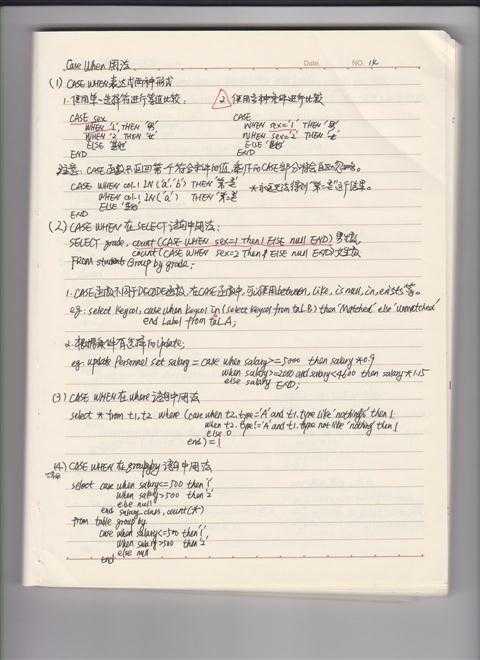 Case When 用法
Date
NO.
(1) CASE WHEN 表达式两种形式
1. 使用单一选择符进行等值比较: 2. 使用多种条件进行比较
CASE sex CASE
WHEN '1' THEN '男' WHEN sex='1' THEN '男'
WHEN '2' THEN '女' WHEN sex='2' THEN '女'
ELSE '其他' ELSE '其他'
END END
注意: CASE 函数只返回第一个符合条件的值,剩下的CASE部分将会自动忽略。
CASE WHEN col-1 IN ('a','b') THEN '第一类' *永远无法得到'第二类'这个结果。
WHEN col-1 IN ('a') THEN '第二类'
ELSE '其他'
END
(2) CASE WHEN 在 SELECT 语句中用法:
SELECT grade, count(CASE WHEN sex=1 Then 1 ELSE null END) 男生数,
count(CASE WHEN sex=2 Then 1 ELSE null END) 女生数
FROM students Group by grade;
1. CASE函数不同于DECODE函数,在CASE函数中,可以使用between, like, is null, in, exists等。
eg: select keycol, case when keycol in (select keycol from tal.B) then 'Matched' else 'unmatched'
end Label from tal.A;
2. 根据条件有选择的update;
eg: update Personnel set salary = case when salary>=5000 then salary*0.9
when salary>=2000 and salary<4600 then salary*1.15
else salary END;
(3) CASE WHEN 在 where 语句中用法
select * from t1,t2 where (case when t2.type='A' and t1.type like 'nothing%' then 1
when t2.type!='A' and t1.type not like 'nothing' then 1
else 0
end) = 1
(4) CASE WHEN 在 group by 语句中用法
select case when salary<=500 then '1'
when salary>500 then '2'
else null
end salary_class, count(*)
from table group by
case when salary<=500 then '1'
when salary>500 then '2'
else null
end